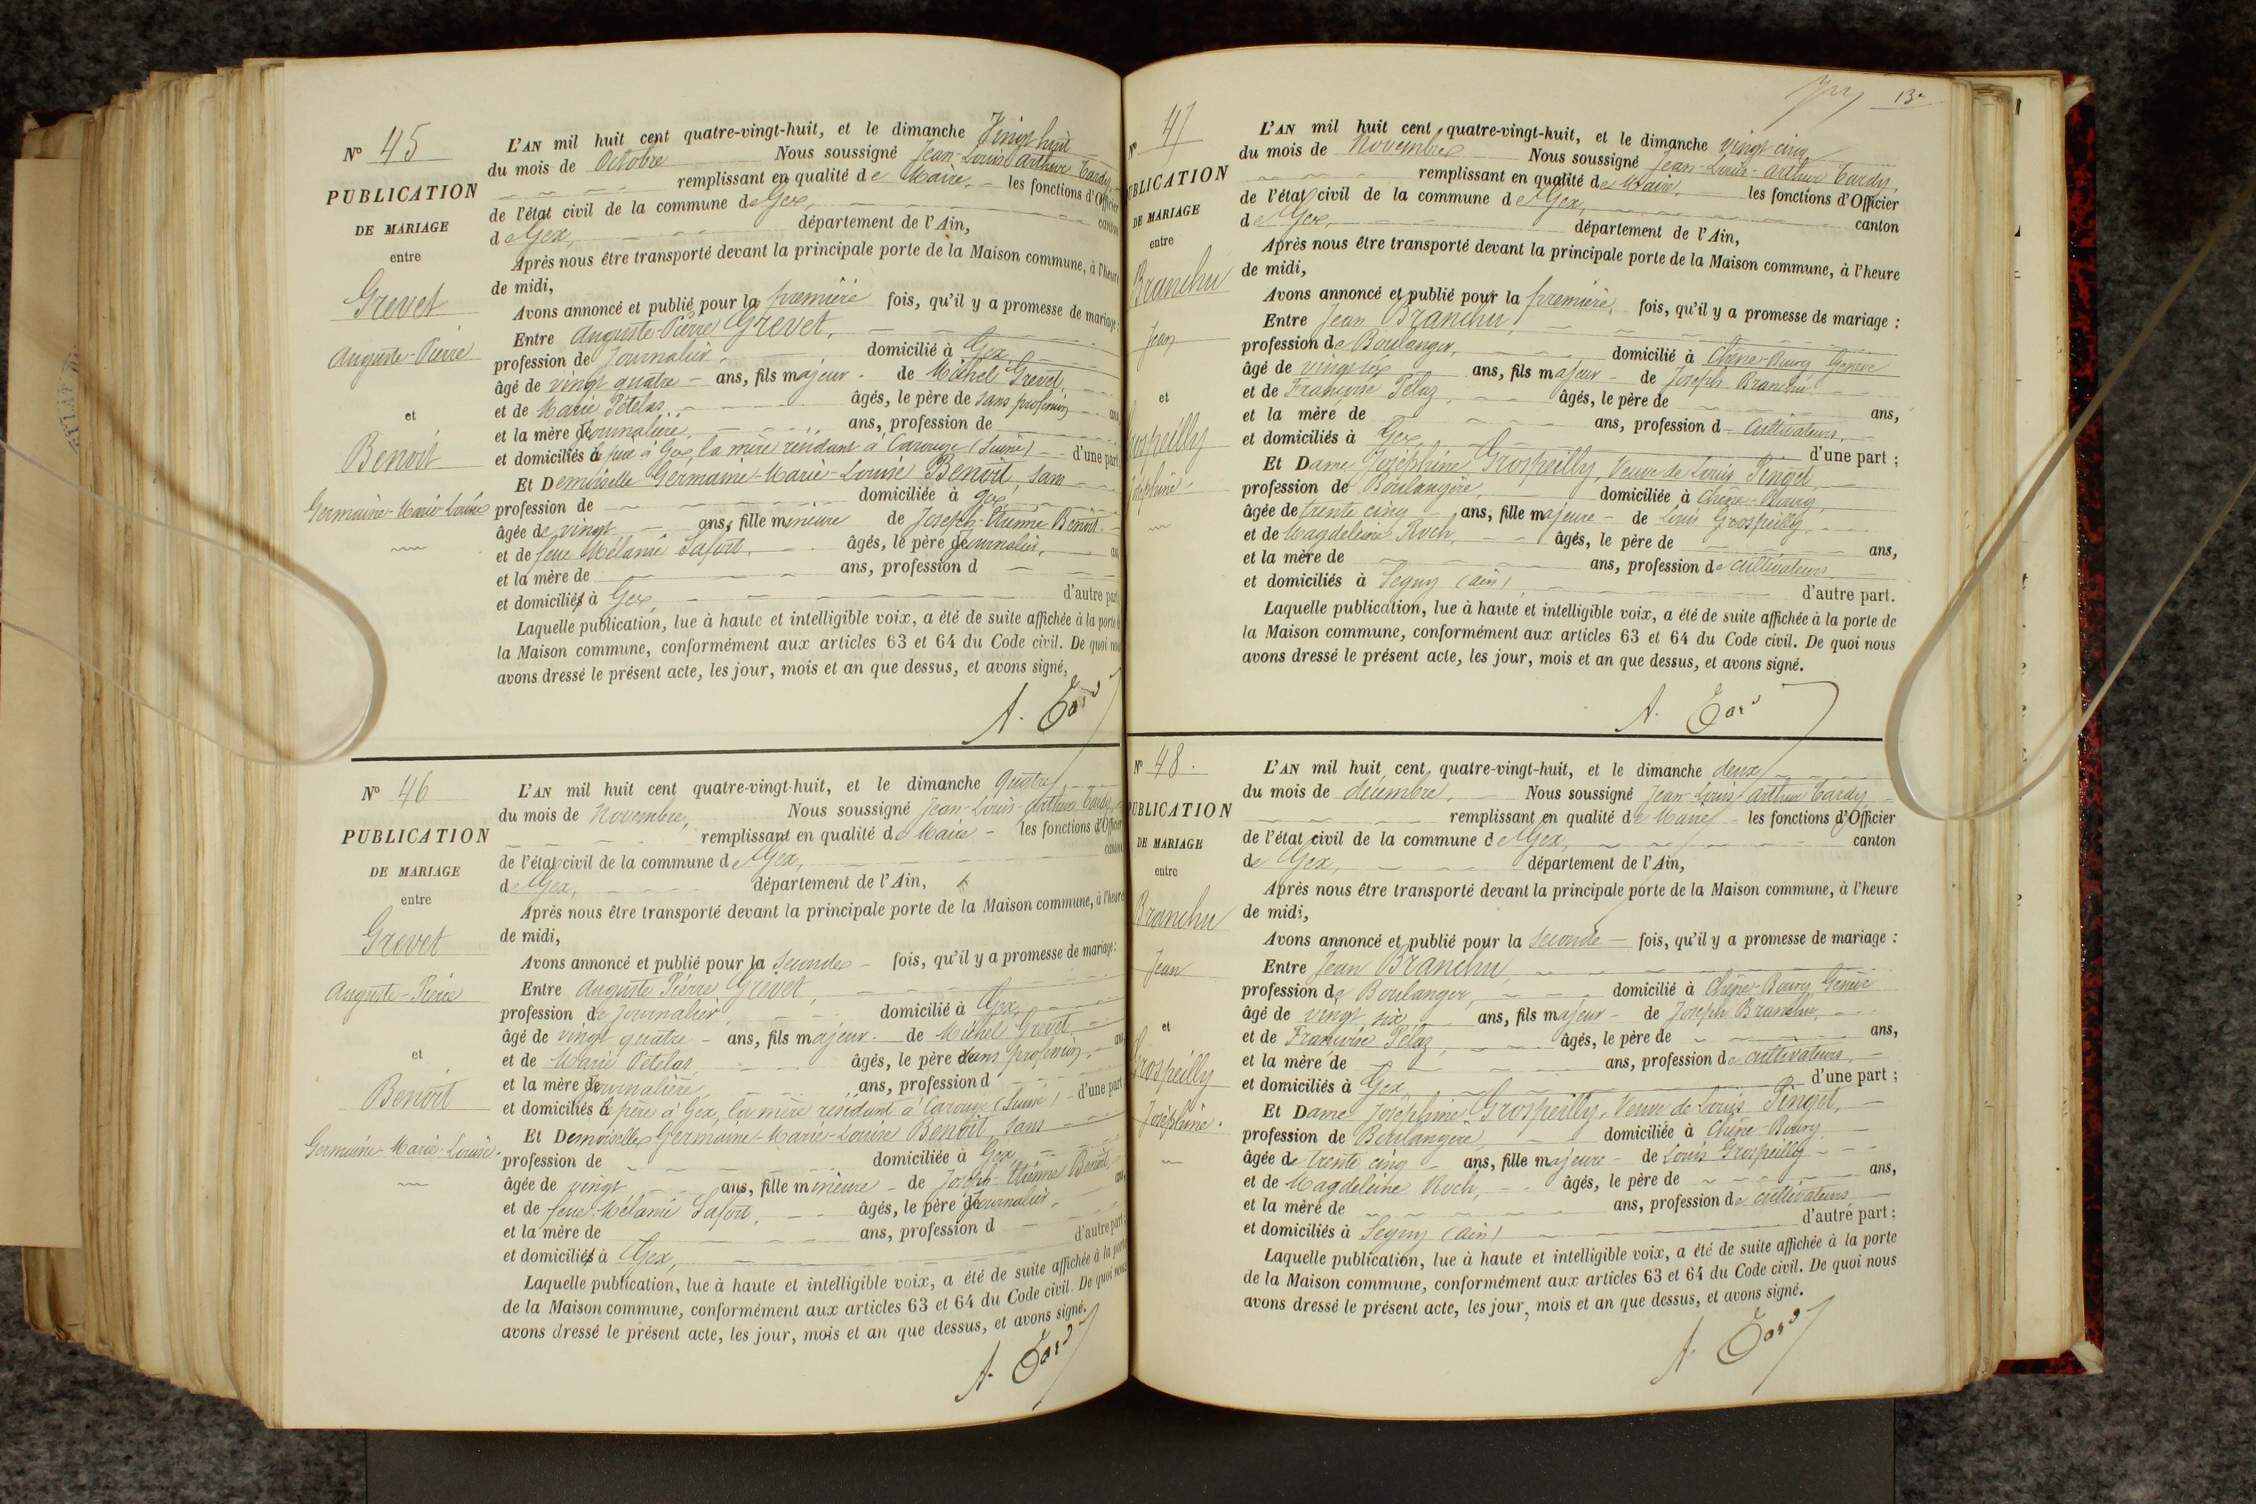 Nº 45
PUBLICATION
DE MARIAGE
entre
Grevet
Auguste-Pierre
et
Benoit
Germaine-Marie-Louise
L'AN mil huit cent quatre-vingt-huit, et le dimanche Vingt huit
du mois de Octobre Nous soussigné Jean-Louis Arthur Tardy,
remplissant en qualité de Maire. les fonctions d'Officier
de l'état civil de la commune de Gex, canton
de Gex, département de l'Ain,
Après nous être transporté devant la principale porte de la Maison commune, à l'heure
de midi,
Avons annoncé et publié pour la première fois, qu'il y a promesse de mariage :
Entre Auguste-Pierre Grevet,
profession de Journalier, domicilié à Gex,
âgé de vingt quatre ans, fils majeur de Michel Grevet,
et de Marie Pételas, âgés, le père de sans profession ans
et la mère de Journalière, ans, profession de
et domiciliés à père à Gex, la mère résidant à Carouge (Suisse) d'une part
Et Demoiselle Germaine-Marie-Louise Benoit, sans
profession de domiciliée à Gex,
âgée de vingt ans, fille mineure de Joseph-Etienne Benoit
et de feue Mélanie Lafort, âgés, le père de Journalier, an
et la mère de ans, profession d
et domiciliés à Gex, d'autre part
Laquelle publication, lue à haute et intelligible voix, a été de suite affichée à la porte d
la Maison commune, conformément aux articles 63 et 64 du Code civil. De quoi nous
avons dressé le présent acte, les jour, mois et an que dessus, et avons signé,
A. Tardy
Nº 46
PUBLICATION
DE MARIAGE
entre
Grevet
Auguste-Pierre
et
Benoit
Germaine-Marie-Louise.
L'AN mil huit cent quatre-vingt-huit, et le dimanche quatre
du mois de Novembre, Nous soussigné Jean-Louis-Arthur Tardy,
remplissant en qualité de Maire les fonctions d'Officier
de l'état civil de la commune de Gex, canton
de Gex, département de l'Ain,
Après nous être transporté devant la principale porte de la Maison commune, à l'heure
de midi,
Avons annoncé et publié pour la Seconde fois, qu'il y a promesse de mariage :
Entre Auguste Pierre Grevet,
profession de Journalier, domicilié à Gex,
âgé de vingt quatre ans, fils majeur de Michel Grevet,
et de Marie Pételas, âgés, le père de sans profession, ans
et la mère de Journalière, ans, profession d
et domiciliés à père à Gex, la mère résidant à Carouge (Suisse) d'une part
Et Demoiselle Germaine-Marie-Louise Benoit, sans
profession de domiciliée à Gex,
âgée de vingt ans, fille mineure de Joseph-Etienne Benoit
et de feue Mélanie Lafort, âgés, le père de Journalier, ans,
et la mère de ans, profession d
et domiciliés à Gex, d'autre part ;
Laquelle publication, lue à haute et intelligible voix, a été de suite affichée à la porte
de la Maison commune, conformément aux articles 63 et 64 du Code civil. De quoi nous
avons dressé le présent acte, les jour, mois et an que dessus, et avons signé.
A. Tardy
13e
Nº 47
PUBLICATION
DE MARIAGE
entre
Branchu
Jean
et
Grospeilly
Joséphine
L'AN mil huit cent quatre-vingt-huit, et le dimanche vingt cinq
du mois de Novembre Nous soussigné Jean-Louis-Arthur Tardy,
remplissant en qualité de Maire, les fonctions d'Officier
de l'état civil de la commune de Gex, canton
de Gex, département de l'Ain,
Après nous être transporté devant la principale porte de la Maison commune, à l'heure
de midi,
Avons annoncé et publié pour la première fois, qu'il y a promesse de mariage :
Entre Jean Branchu,
profession de Boulanger, domicilié à Chêne-Bourg Genève
âgé de vingt six ans, fils majeur de Joseph Branchu
et de Françoise Pélaz, âgés, le père de ans,
et la mère de ans, profession d Cultivateurs,
et domiciliés à Gex, d'une part ;
Et Dame Joséphine Grospeilly, Veuve de Louis Pinget
profession de Boulangère, domiciliée à Chêne-Bourg,
âgée de trente cinq ans, fille majeure de Louis Grospeilly
et de Magdeleine Roch, âgés, le père de ans,
et la mère de ans, profession de cultivateurs
et domiciliés à Segny (Ain) d'autre part.
Laquelle publication, lue à haute et intelligible voix, a été de suite affichée à la porte de
la Maison commune, conformément aux articles 63 et 64 du Code civil. De quoi nous
avons dressé le présent acte, les jour, mois et an que dessus, et avons signé.
A. Tardy
Nº 48.
PUBLICATION
DE MARIAGE
entre
Branchu
Jean
et
Grospeilly
Joséphine.
L'AN mil huit cent quatre-vingt-huit, et le dimanche deux
du mois de décembre, Nous soussigné Jean-Louis Arthur Tardy
remplissant en qualité de Maire les fonctions d'Officier
de l'état civil de la commune de Gex, canton
de Gex, département de l'Ain,
Après nous être transporté devant la principale porte de la Maison commune, à l'heure
de midi,
Avons annoncé et publié pour la Seconde fois, qu'il y a promesse de mariage :
Entre Jean Branchu
profession de Boulanger, domicilié à Chêne-Bourg Genève
âgé de vingt six ans, fils majeur de Joseph Branchu,
et de Françoise Pélaz, âgés, le père de ans,
et la mère de ans, profession de cultivateurs,
et domiciliés à Gex, d'une part ;
Et Dame Joséphine Grospeilly, Veuve de Louis Pinget,
profession de Boulangère, domiciliée à Chêne-Bourg
âgée de trente cinq ans, fille majeure de Louis Grospeilly
et de Magdeleine Roch, âgés, le père de ans,
et la mère de ans, profession de cultivateurs
et domiciliés à Segny (Ain) d'autre part ;
Laquelle publication, lue à haute et intelligible voix, a été de suite affichée à la porte
de la Maison commune, conformément aux articles 63 et 64 du Code civil. De quoi nous
avons dressé le présent acte, les jour, mois et an que dessus, et avons signé.
A. Tardy